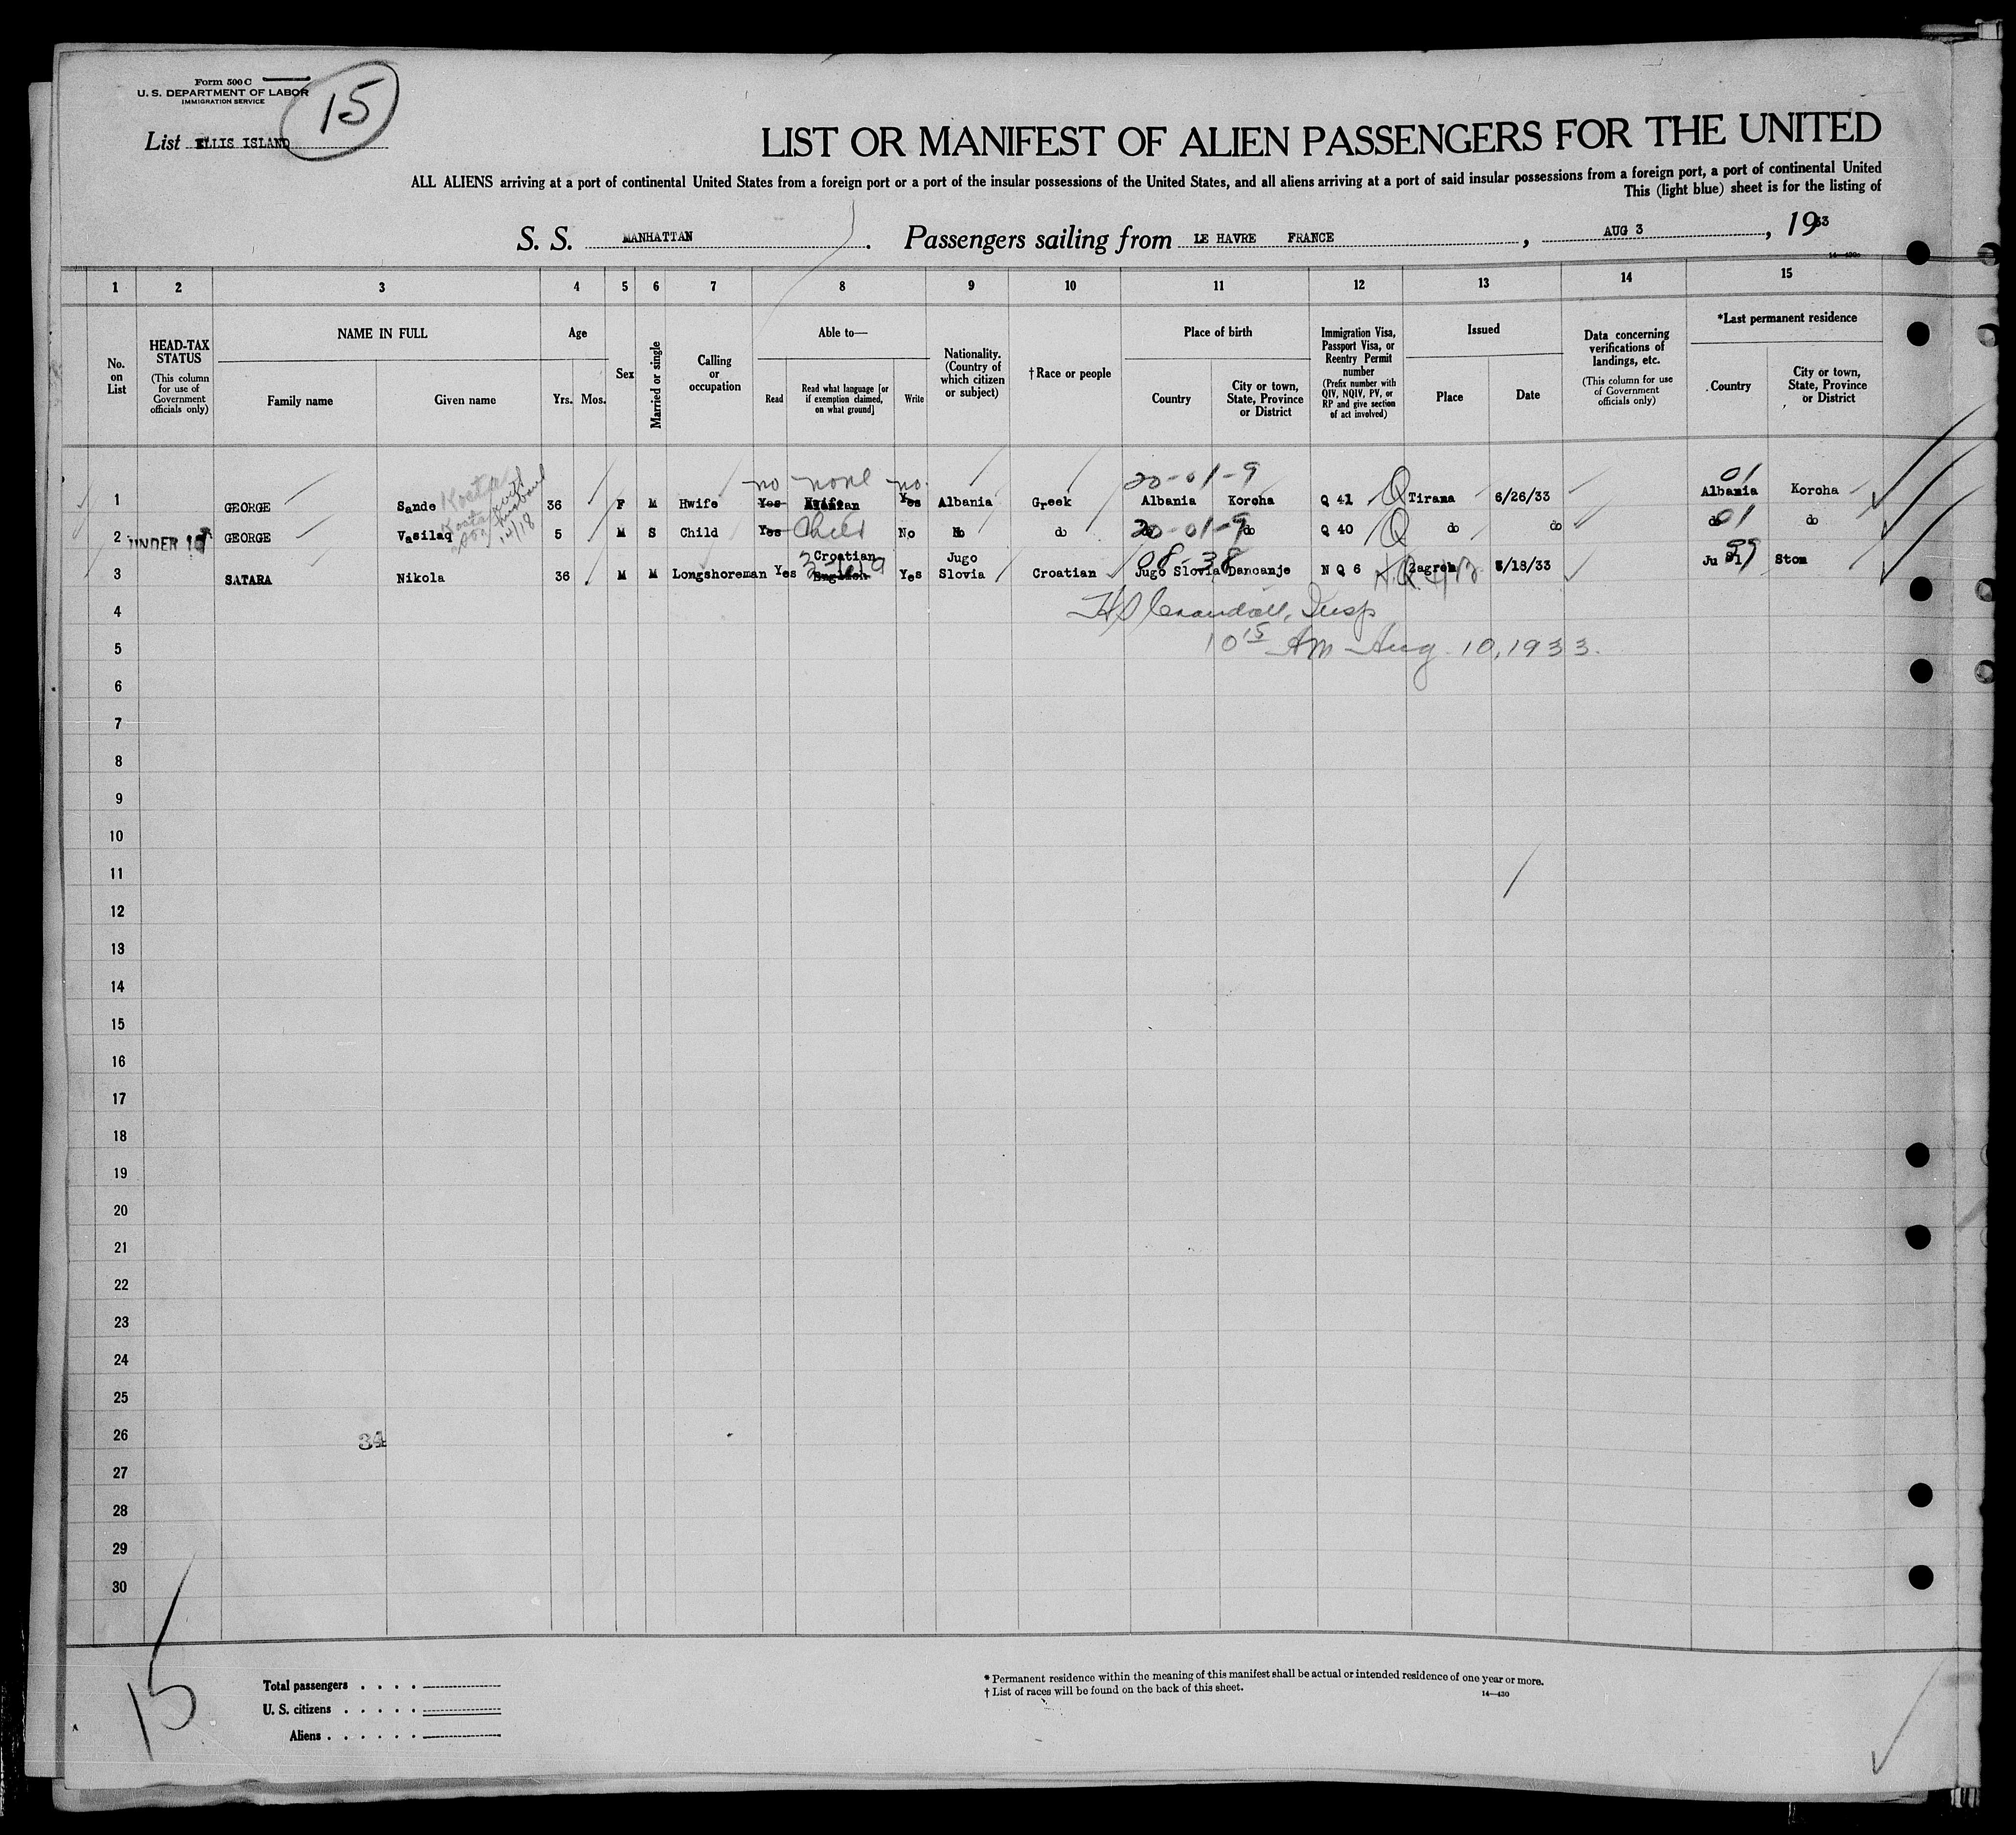 Form 500 C
U. S. DEPARTMENT OF LABOR
IMMIGRATION SERVICE
15
List ELLIS ISLAND
LIST OR MANIFEST OF ALIEN PASSENGERS FOR THE UNITED
ALL ALIENS arriving at a port of continental United States from a foreign port or a port of the insular possessions of the United States, and all aliens arriving at a port of said insular possessions from a foreign port, a port of continental United
This (light blue) sheet is for the listing of
S. S. MANHATTAN. Passengers sailing from LE HAVRE FRANCE, AUG 3, 1933
1 2 3 4 5 6 7 8 9 10 11 12 13 14 15
No. on List
HEAD-TAX STATUS (This column for use of Government officials only)
NAME IN FULL
Family name
Given name
Age
Yrs. Mos.
Sex
Married or single
Calling or occupation
Able to—
Read
Read what language [or if exemption claimed, on what ground]
Write
Nationality. (Country of which citizen or subject)
†Race or people
Place of birth
Country
City or town, State, Province or District
Immigration Visa, Passport Visa, or Reentry Permit number (Prefix number with QIV, NQIV, PV, or RP and give section of act involved)
Issued
Place
Date
Data concerning verifications of landings, etc. (This column for use of Government officials only)
*Last permanent residence
Country
City or town, State, Province or District
no none no. 20-01-9 01
1 GEORGE Sande Kosta 36 F M Hwife Yes Yes Albania Greek Albania Korcha Q 41 Q Tirana 6/26/33 Albania Korcha
with husband 14/18
2 UNDER 16 GEORGE Vasilaq 5 M S Child Yes Child No do do 20-01-9 do Q 40 Q do do do 01 do
3 SATARA Nikola 36 M M Longshoreman Yes Croatian English Yes Jugo Slovia Croatian 08-38 Jugo Slovia Dancanje N Q 6 Zagreb 5/18/33 Ju Sl 99 Stom
4
Insp
5
10 15 AM Aug. 10, 1933.
6
7
8
9
10
11
12
13
14
15
16
17
18
19
20
21
22
23
24
25
26
34
27
28
29
30
15
Total passengers . . . .
U. S. citizens . . . . .
Aliens . . . . . .
* Permanent residence within the meaning of this manifest shall be actual or intended residence of one year or more.
† List of races will be found on the back of this sheet.
14—430